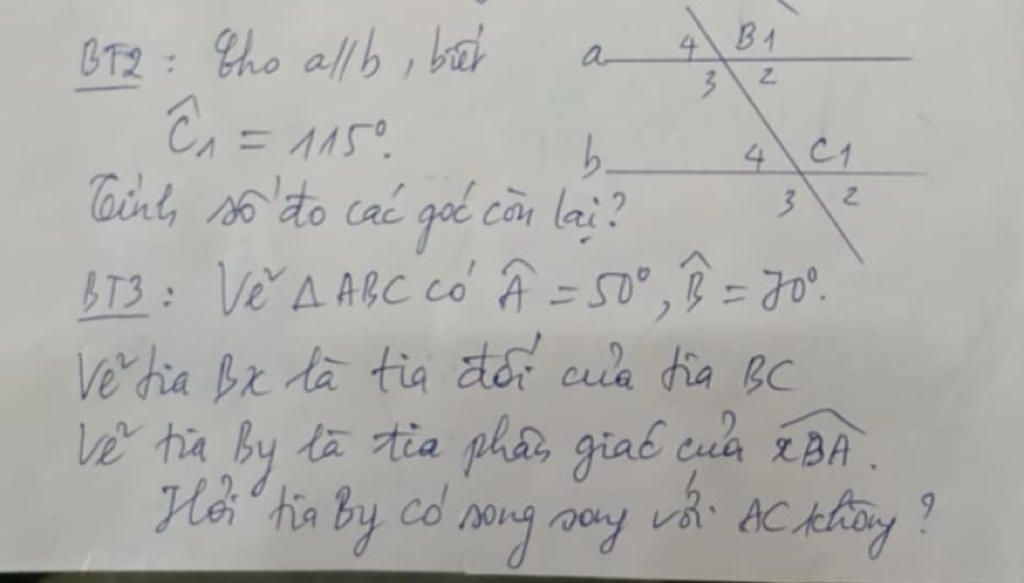 BT2 : Cho a//b, biết
Ĉ1 = 115°.
Tính số đo các góc còn lại?
a 4 B 1
3 2
b 4 C 1
3 2
BT3 : Vẽ ΔABC có Â = 50°, B̂ = 70°.
Vẽ tia Bx là tia đối của tia BC
Vẽ tia By là tia phân giác của xBA.
Hỏi tia By có song song với AC không?